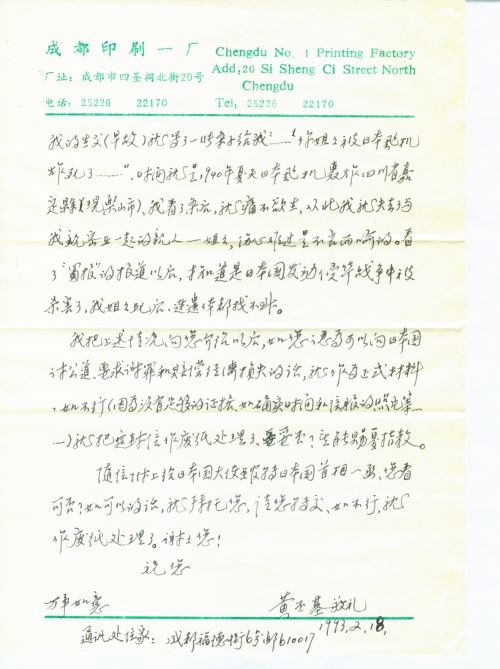 成都印刷一厂
Chengdu No. 1 Printing Factory
厂址：成都市四圣祠北街20号
Add:20 Si Sheng Ci Street North
Chengdu
电话：25226 22170
Tel：25226 22170
我的生父(早故)就写了一封亲子给我“……你姐々被日本飞机
炸死了……”，时间就是1940年夏天日本飞机轰炸四川省嘉
定县(现乐山市)，我看了亲后，就痛不欲生，从此我就失去了与
我就在一起的亲人一姐々，该心难过是不言而喻的。看
了“蜀报”的报道以后，才知道是日本国发动侵华战争中被
杀害了，我姐々死后，连遗体都找不到。
我把上述情况向您介绍以后，如您认为可以向日本国
讨公道、要求谢罪和赔偿经济损失的话，就作为正式材料
，如不行(因为没有足够的证据，如确实时间和信服的照片等…
…)就把这封信作废纸处理了，要否？望能赐复指教。
随信附上给日本国大使并转日本国首相一函，您看
可否？如可以的话，就拜托您，请您转交，如不行，就
作废纸处理了。谢々您！
祝您
万事如意
黄丕基敬礼
1993.2.18.
通讯处住家：成都福德街6号邮610017